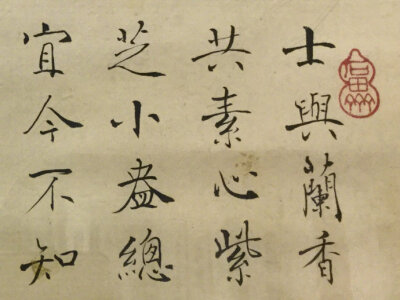 士與蘭香
共素心紫
芝小盎總
宜今不知